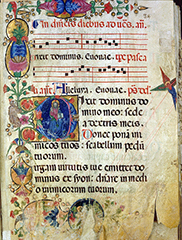 In dnicis diebus ad ves. an.
Dixit dominus. Euouae. tpe pasca
li añ. Alleluya. Euouae. ps. dd.
Dixit dominus do
mino meo: sede
a dextris meis.
Donec ponā ini
micos tuos: scabellum pedū
tuorum.
irgam virtutis tue emittet do
minus ex syon: dñare in medi
o inimicorum tuorum.